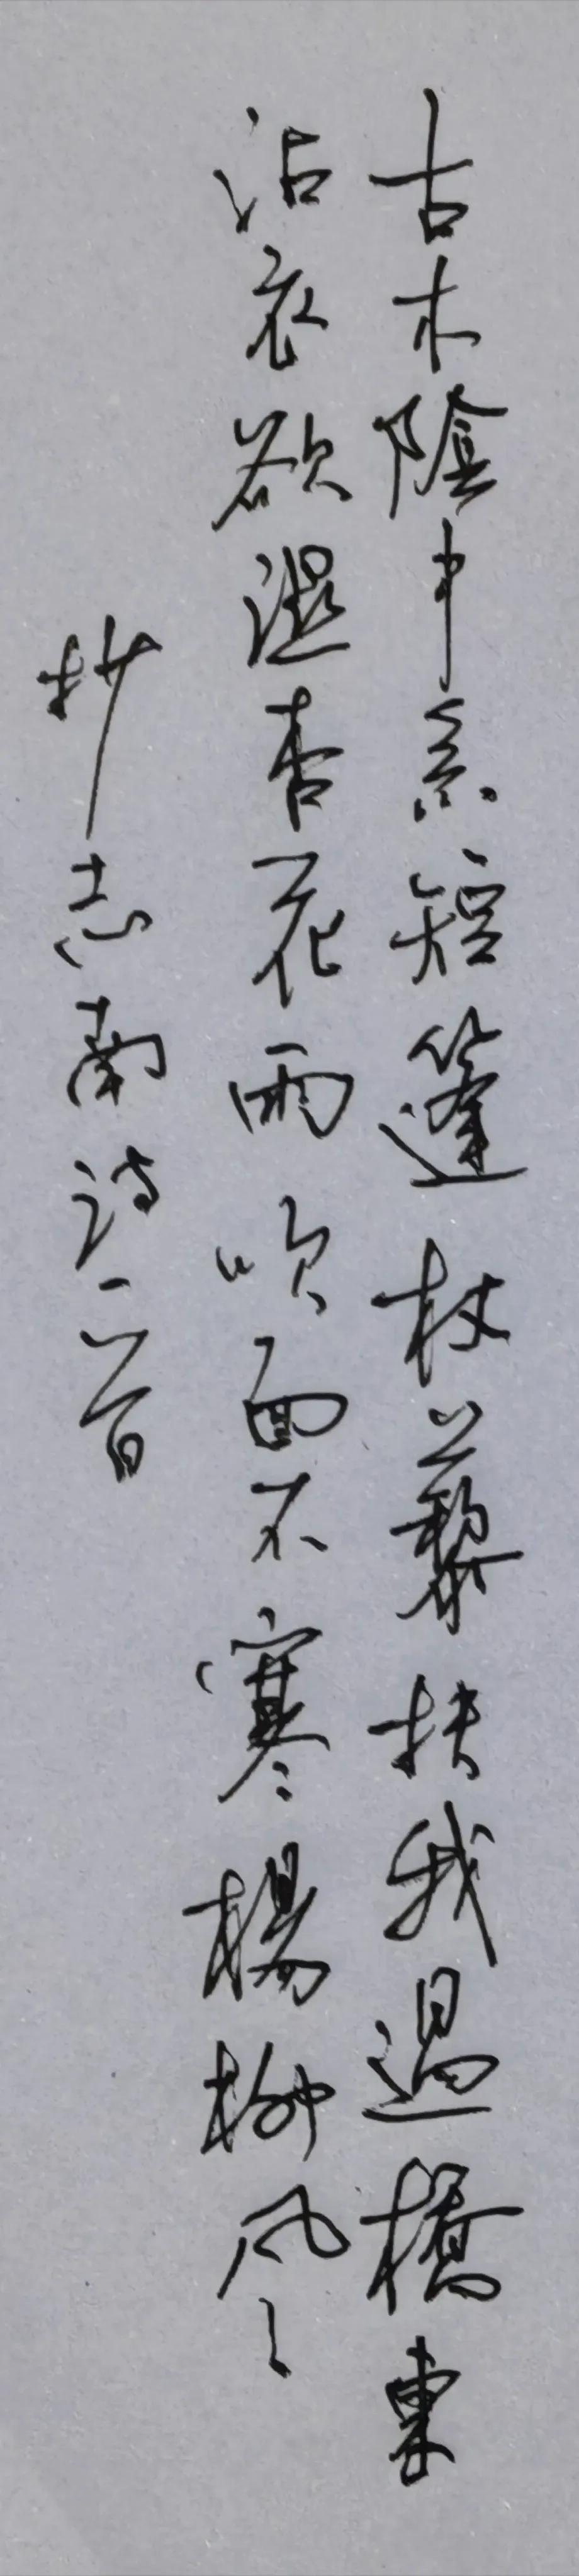 古木陰中系短篷杖藜扶我過橋東
沾衣欲濕杏花雨吹面不寒楊柳風
抄志南诗一首